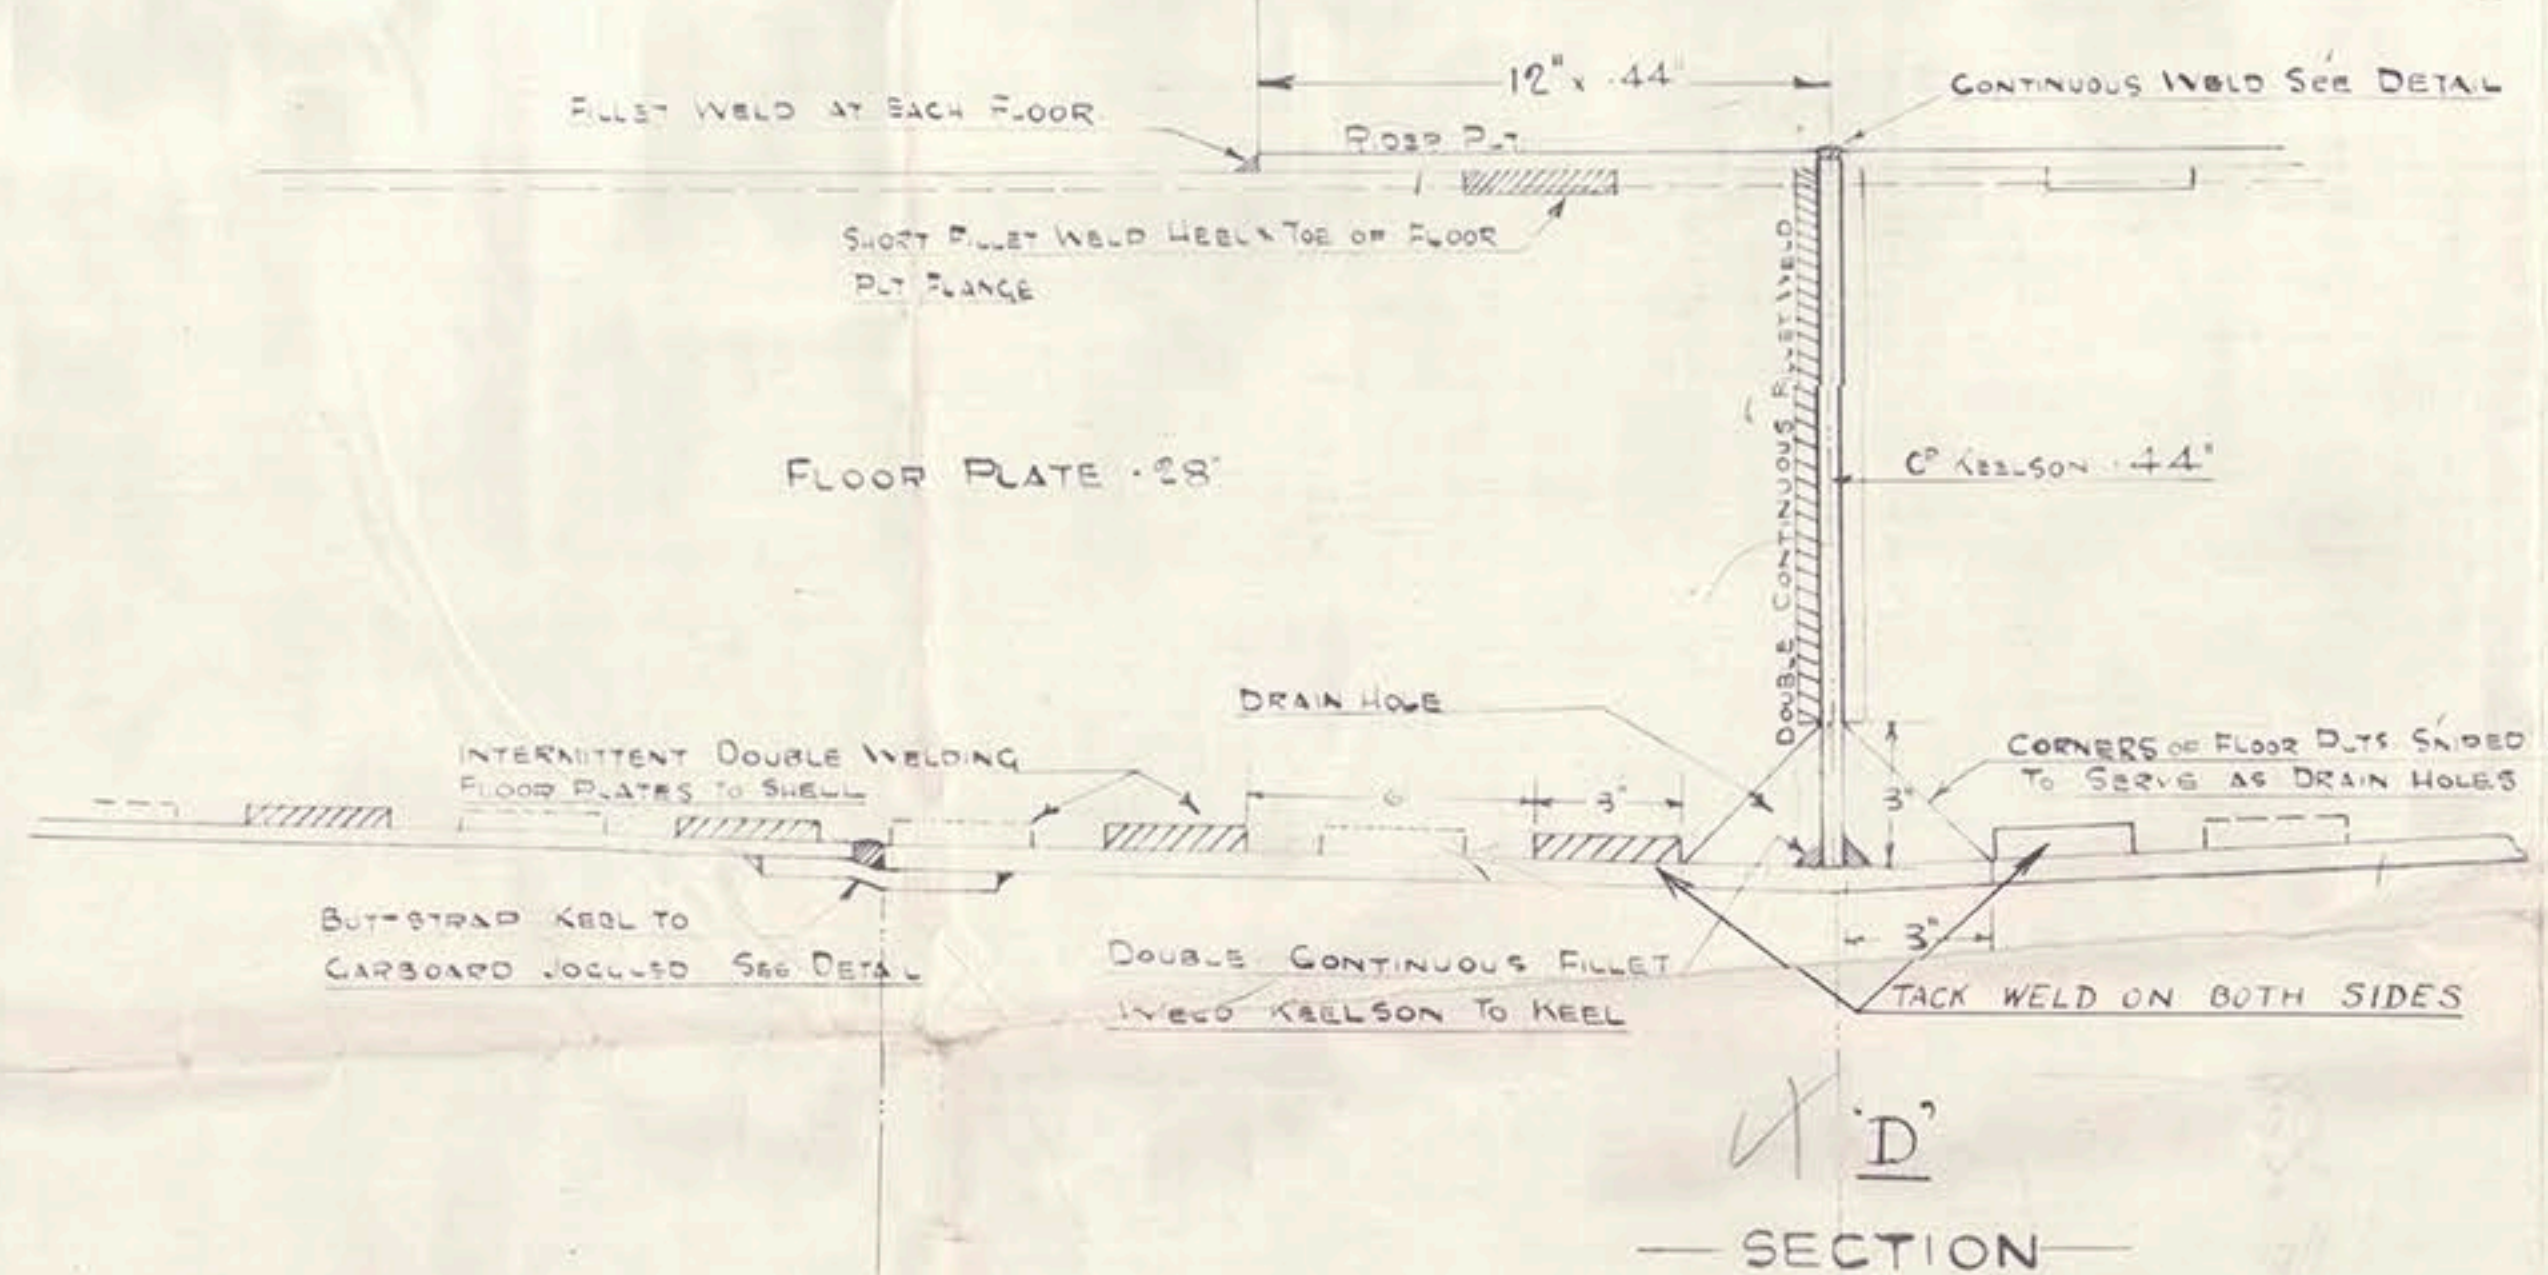 12" x .44"
CONTINUOUS WELD SEE DETAIL
FILLET WELD AT EACH FLOOR
RIDER PLT
SHORT FILLET WELD HEEL & TOE OF FLOOR
PLT FLANGE
DOUBLE CONTINUOUS FILLET WELD
FLOOR PLATE .28"
CP KEELSON .44"
DRAIN HOLE
INTERMITTENT DOUBLE WELDING
FLOOR PLATES TO SHELL
CORNERS OF FLOOR PLTS SNIPED
TO SERVE AS DRAIN HOLES
6
3"
3"
3"
BUT-STRAP KEEL TO
GARBOARD JOGGLED SEE DETAIL
DOUBLE CONTINUOUS FILLET
WELD KEELSON TO KEEL
TACK WELD ON BOTH SIDES
'D'
SECTION